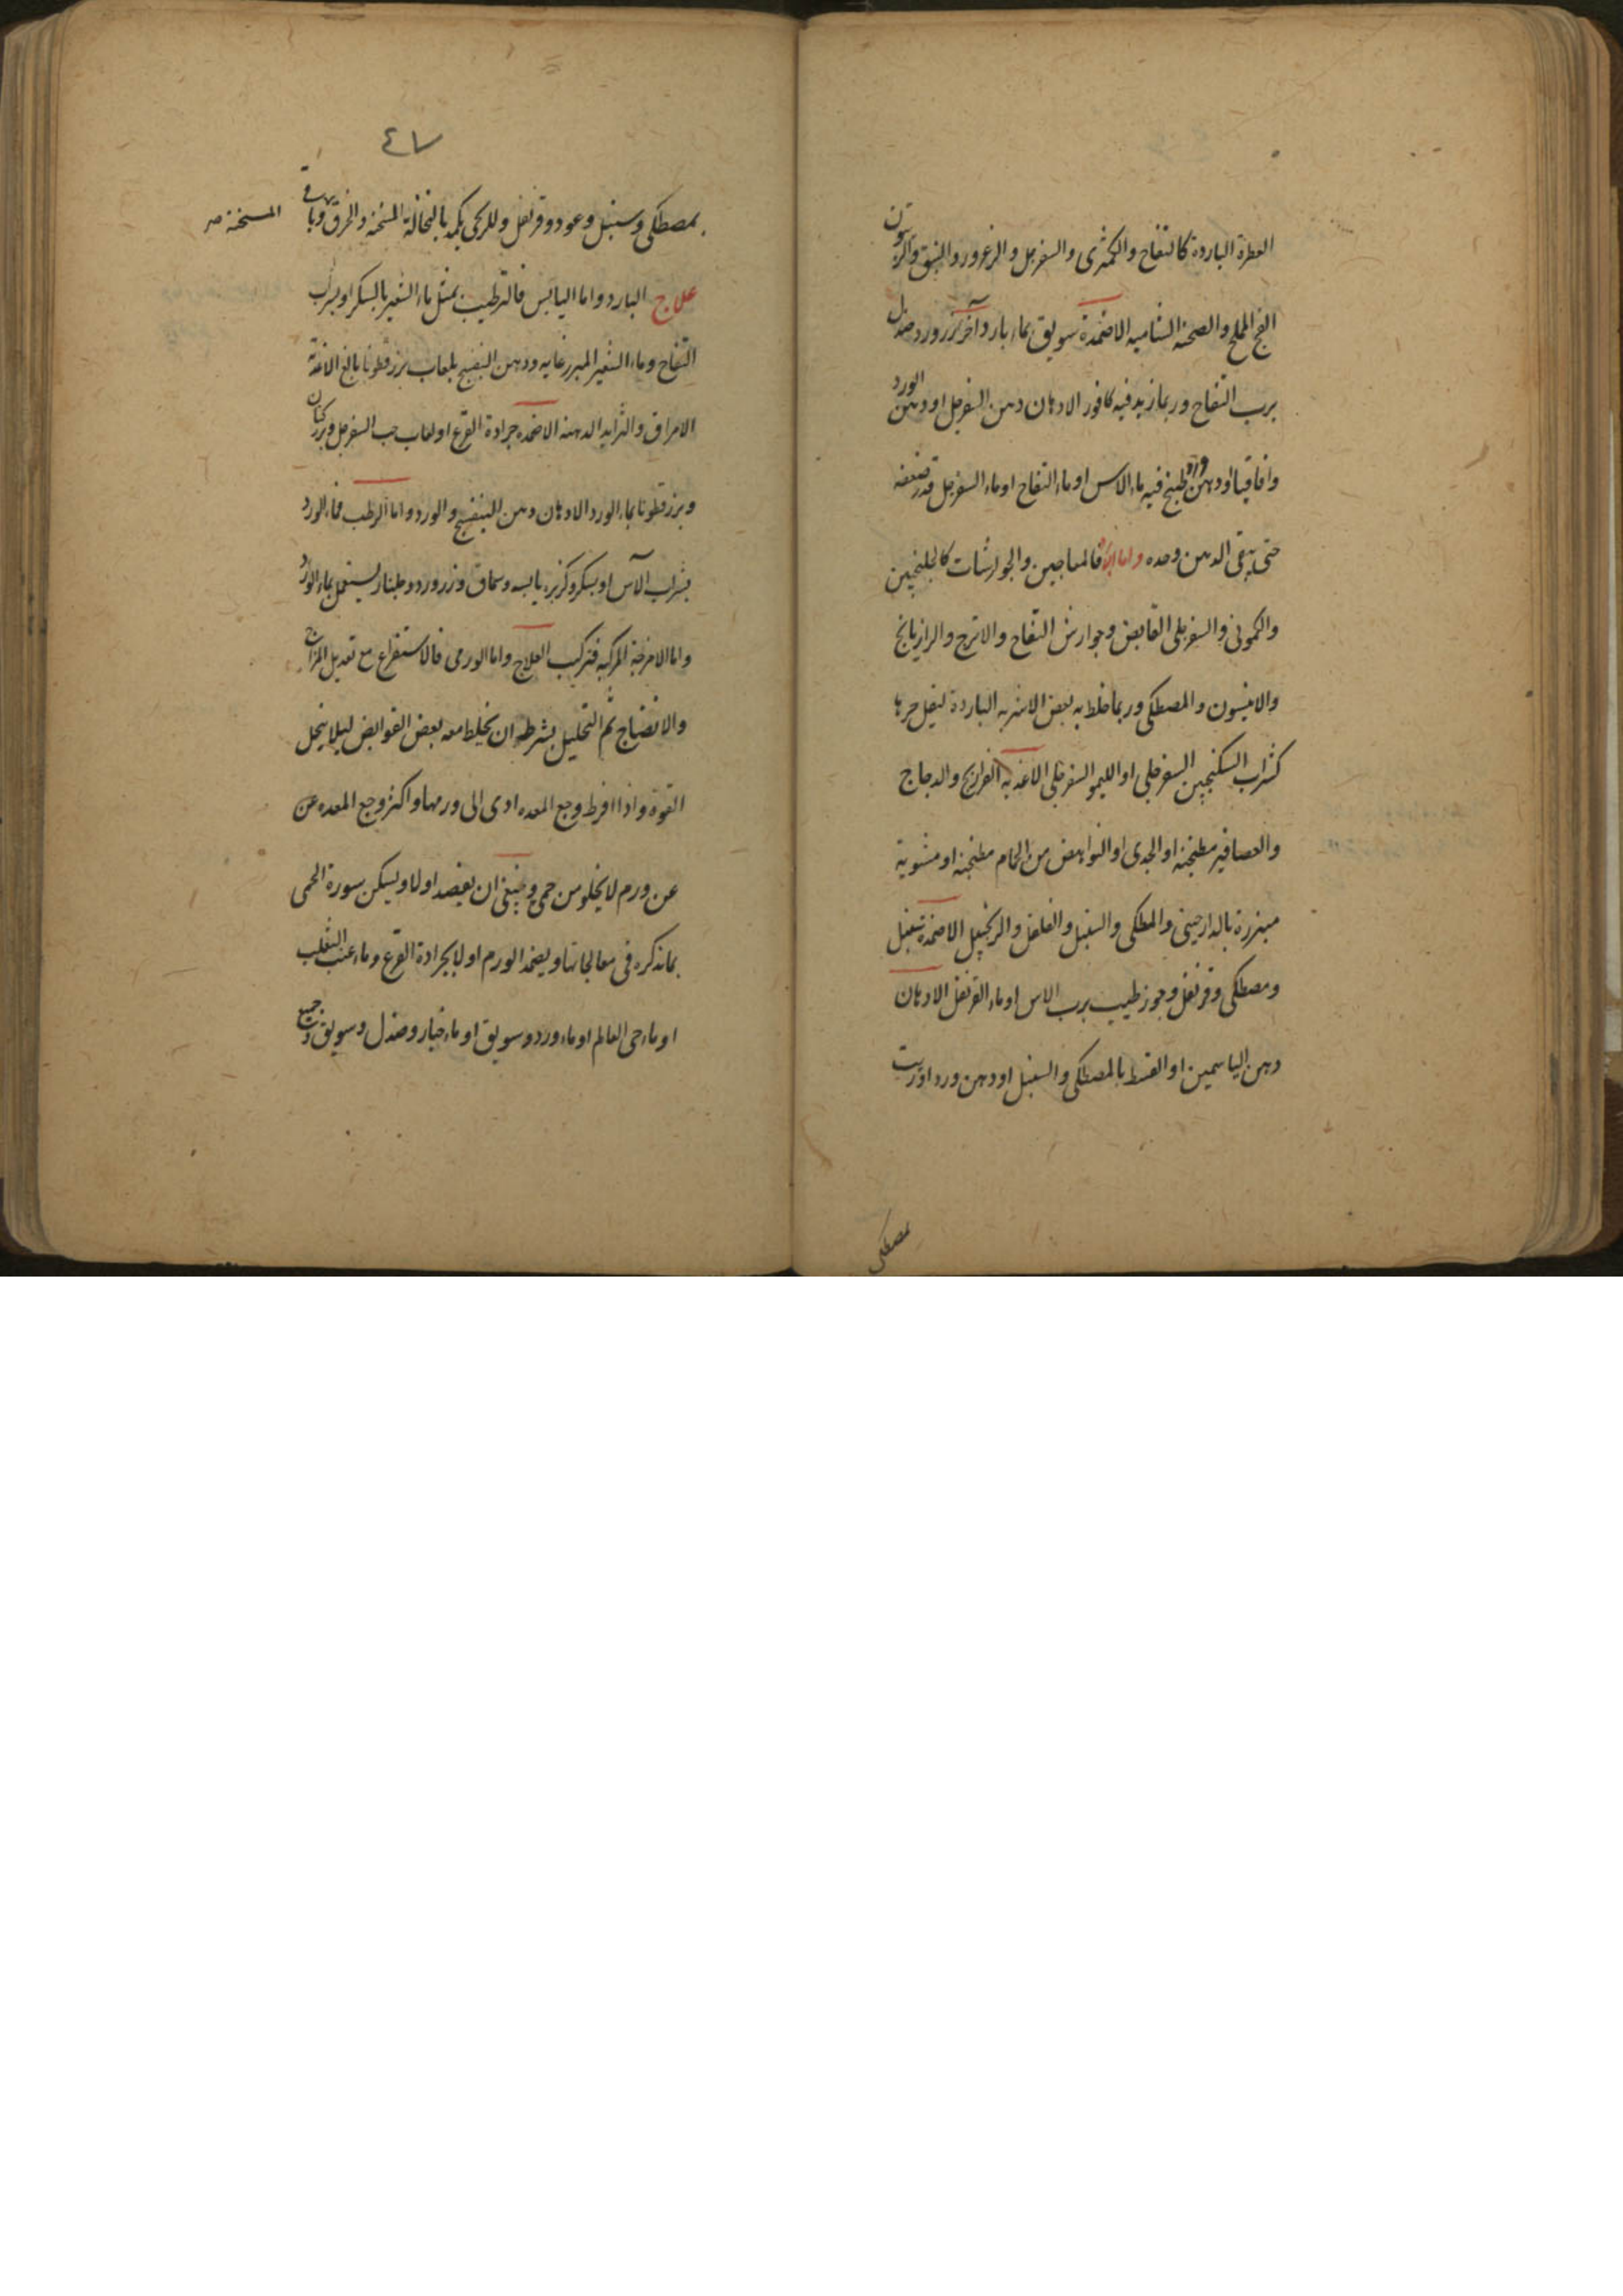 العطرة الباردة كالتفاح والكمثرى والسفرجل والزعرور والنبق والزيتون
الفج المملح والصحنة الشامية الاضمدة سويق بماء بارد وآخر زرورد صندل
برب التفاح وربما زيد فيه كافور الادهان دهن السفرجل او دهن الورد
واقاقيا او دهن ورد طبخ فيه ماء الاس او ماء التفاح او ماء السفرجل قدر ضعفه
حتى يبقى الدهن وحده واما البارد فالمعاجين والجوارشات كالجلنجبين
والكمونى والسفرجلى القابض وجوارش التفاح والاترج والرازيانج
والانيسون والمصطكى وربما خلط به بعض الاشربه الباردة ليقل حرها
كشراب السكنجبين السفرجلى او الليمو السفرجلى الاغذيه الفراريج والدجاج
والعصافير مطجنة او الجدى او النواهض من الحمام مطجنة او مشوية
مبزرة بالدارصينى والمصطكى والسنبل والفلفل والزنجبيل الاضمدة سنبل
ومصطكى وقرنفل وجوز طيب برب الاس او ماء القرنفل الادهان
دهن الياسمين او القسط بالمصطكى والسنبل او دهن ورد او زيت
بمصطكى
٤٧
بمصطكى وسنبل وعود وقرنفل وللريحى يكمد بالنخالة المسخنة والخرق وباقى
المسخنة صه
علاج البارد واما اليابس فالترطيب بمثل ماء الشعير بالسكر او بشراب
التفاح وماء الشعير المبزر غايه ودهن البنفسج بلعاب بزرقطونا بالغ الاغذية
الامراق والثرايد الدهنه الاضمده جرادة القرع او لعاب حب السفرجل وبزر كتان
وبزرقطونا بماء الورد الادهان دهن البنفسج والورد واما الرطب فماء الورد
بشراب الآس او بسكر وكزبره يابسه وسماق وزرورد وجلنار يستعمل بماء الورد
واما الامزجة المركبه فتركيب العلاج واما الورمى فالاستفراغ مع تعديل المزاج
والانضاج ثم التحليل بشرطه ان يخلط معه بعض القوابض ليلا ينحل
القوة واذا افرط وجع المعده ادى الى ورمها واكثر وجع المعده عن
عن ورم لا يخلو من حمى وينبغى ان يفصد اولا ويسكن سورة الحمى
بما نذكره فى معالجاتها ويضمد الورم اولا بجرادة القرع وماء عنب الثعلب
او ماء حى العالم او ماء ورد وسويق او ماء خيار وصندل وسويق وجميع